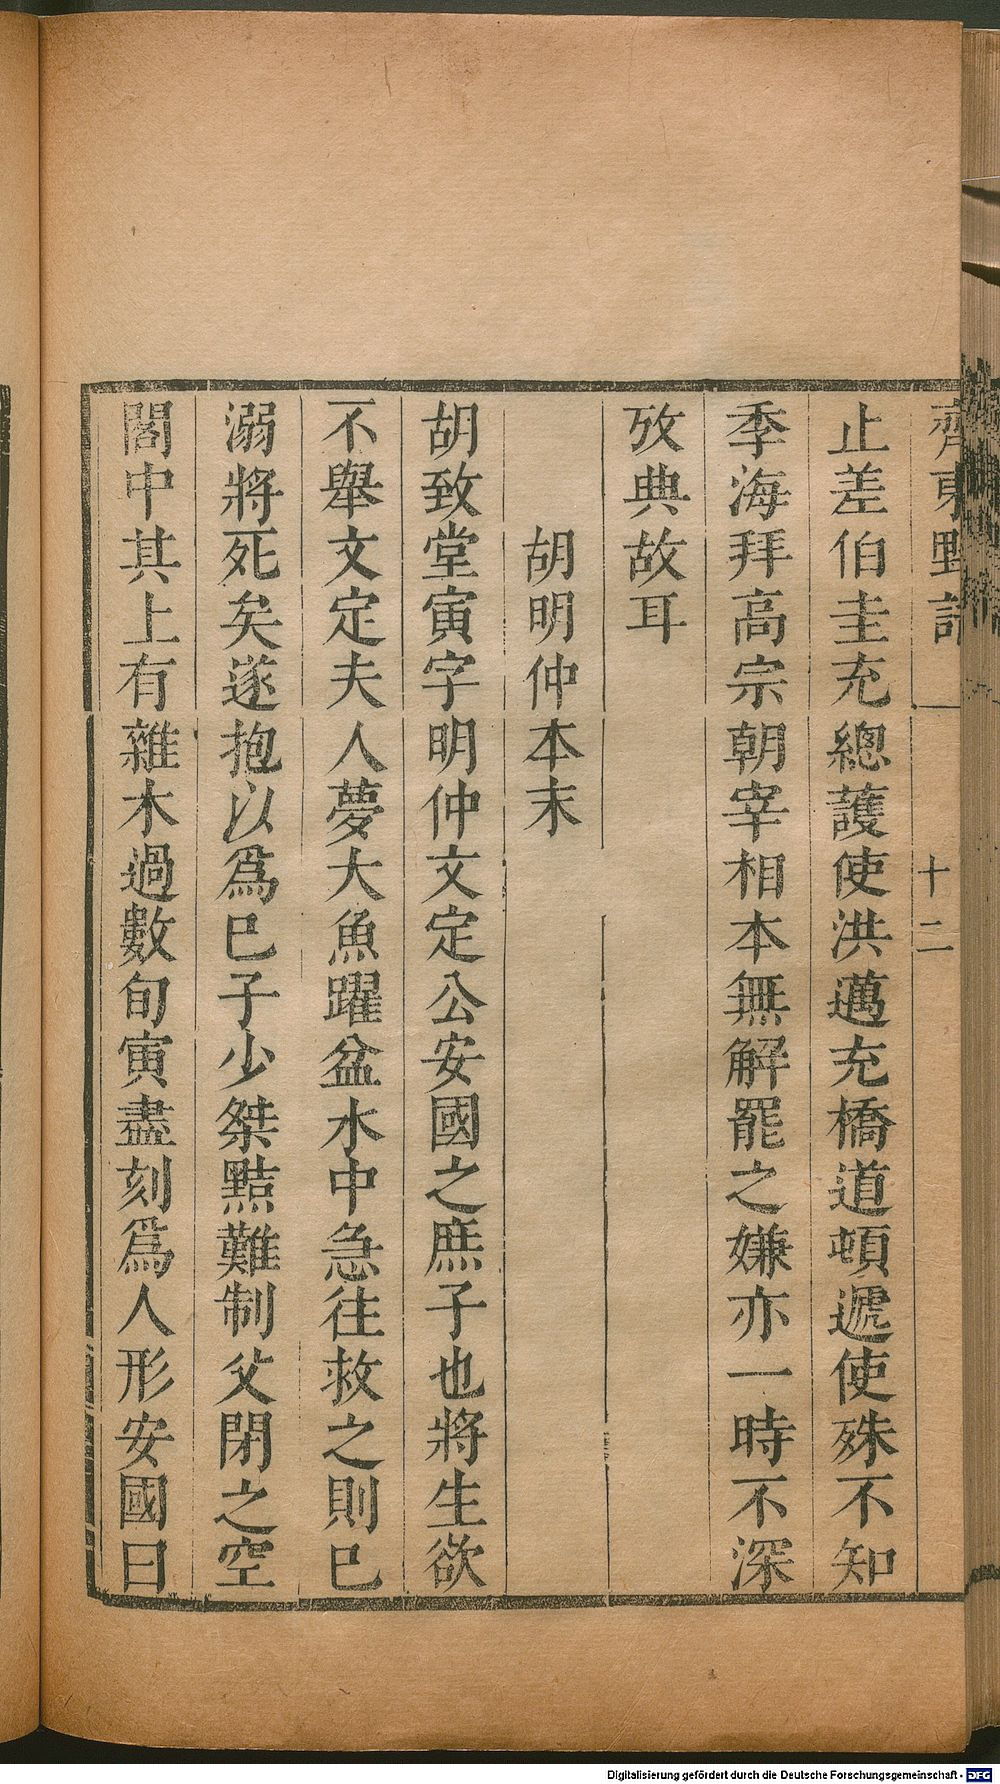 齊東野語
十二
止差伯圭充總護使洪邁充橋道頓遞使殊不知
季海拜高宗朝宰相本無解罷之嫌亦一時不深
攷典故耳
胡明仲本末
胡致堂寅字明仲文定公安國之庶子也將生欲
不舉文定夫人夢大魚躍盆水中急往救之則已
溺將死矣遂抱以爲己子少桀黠難制父閉之空
閣中其上有雜木過數旬寅盡刻爲人形安國曰
Digitalisierung gefördert durch die Deutsche Forschungsgemeinschaft - DFG